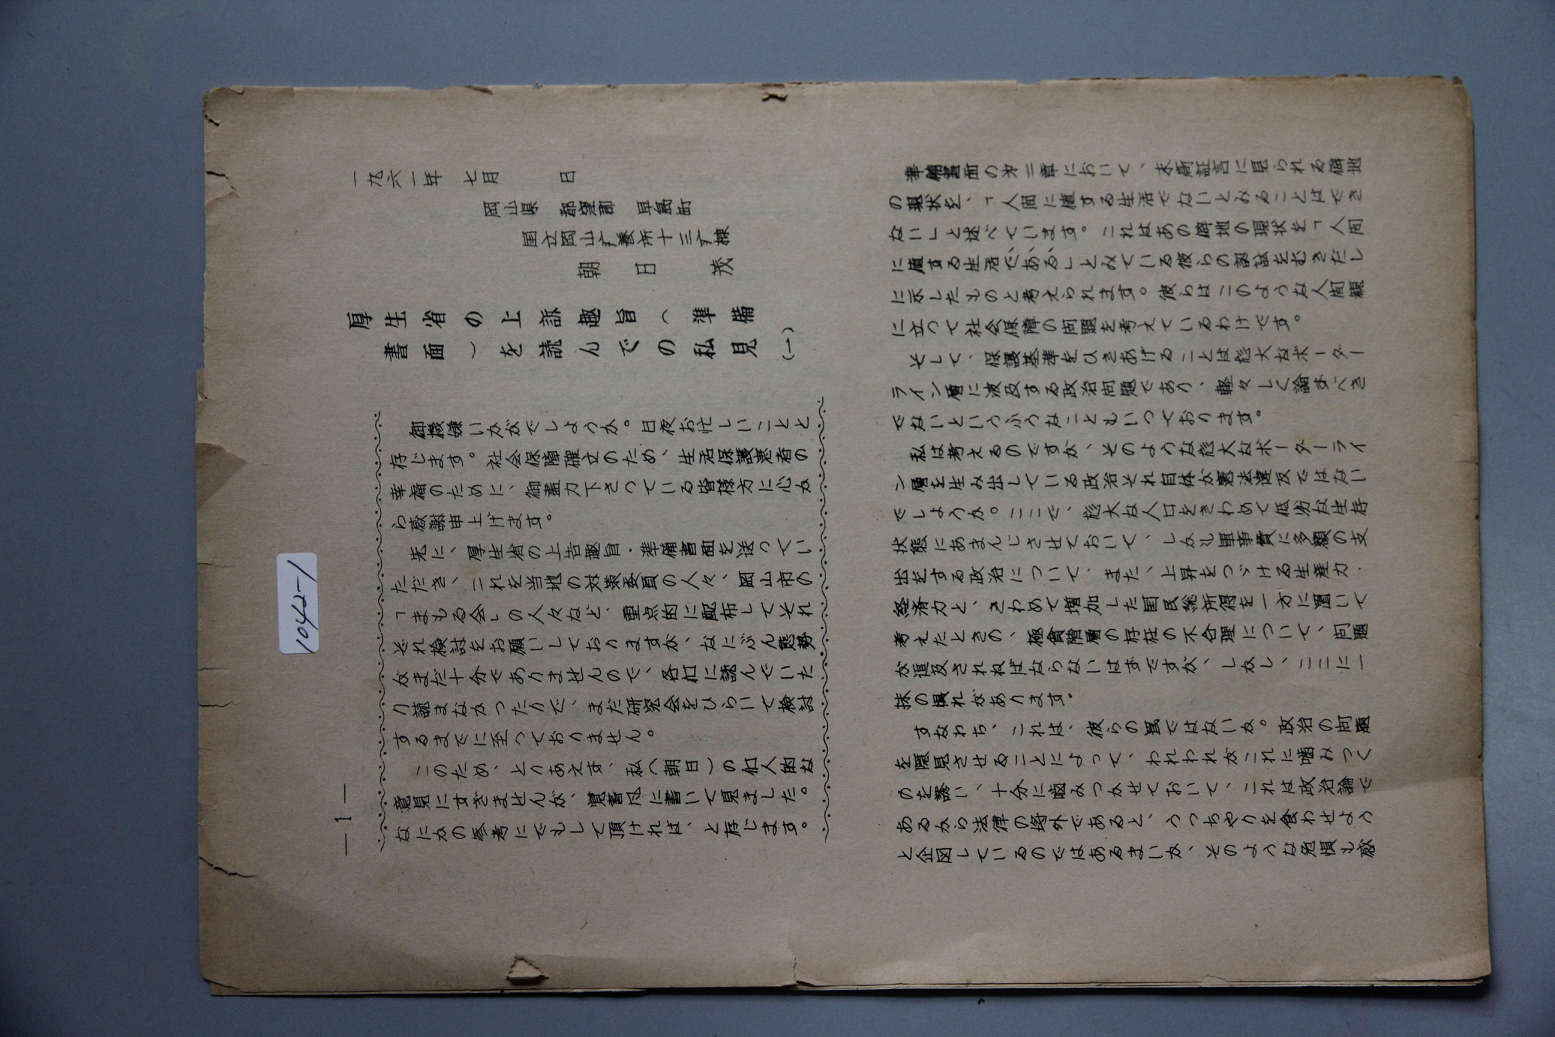 一九六一年 七月 日
岡山県 都窪郡 早島町
国立岡山療養所十三す棟
朝日 茂
厚生省の上訴趣旨(準備
書面)を読んでの私見(一)
御機嫌いかがでしょうか。日夜お忙しいことと
存じます。社会保障確立のため、生活保護患者の
幸福のために、御盡力下さっている皆様方に心か
ら感謝申上げます。
先に、厚生省の上告趣旨・準備書面を送ってい
ただき、これを当地の対策委員の人々、岡山市の
「まもる会」の人々など、重点的に配布してそれ
ぞれ検討をお願いしておりますが、なにぶん態勢
がまだ十分でありませんので、各自に読んでいた
り読まなかったりで、まだ研究会をひらいて検討
するまでに至っておりません。
このため、とりあえず、私(朝日)の個人的な
意見にすぎませんが、覚書風に書いて見ました。
なにかの参考にでもして頂ければ、と存じます。
—1—
準備書面の第三章において、末高証言に見られる僻地
の現状を、「人間に値する生活でないとみることはでき
ない」と述べています。これはあの僻地の現状を「人間
に値する生活で、ある」とみている彼らの認識をむきだし
に示したものと考えられます。彼らはこのような人間観
に立って社会保障の問題を考えているわけです。
そして、保護基準をひきあげることは厖大なボーダー
ライン層に波及する政治問題であり、軽々しく論ずべき
でないというふうなこともいっております。
私は考えるのですが、そのような厖大なボーダーライ
ン層を生み出している政治それ自体が憲法違反ではない
でしょうか。ここで、厖大な人口をきわめて低劣な生存
状態にあまんじさせておいて、しかも軍事費に多額の支
出をする政治について、また、上昇をつづける生産力・
経済力と、きわめて増加した国民総所得を一方に置いて
考えたときの、極貧階層の存在の不合理について、問題
が追及されねばならないはずですが、しかし、ここに一
抹の惧れがあります。
すなわち、これは、彼らの罠ではないか。政治の問題
を隠見させることによって、われわれがこれに噛みつく
のを誘い、十分に噛みつかせておいて、これは政治論で
あるから法律の埒外であると、うっちゃりを食わせよう
と企図しているのではあるまいか、そのような危惧も感